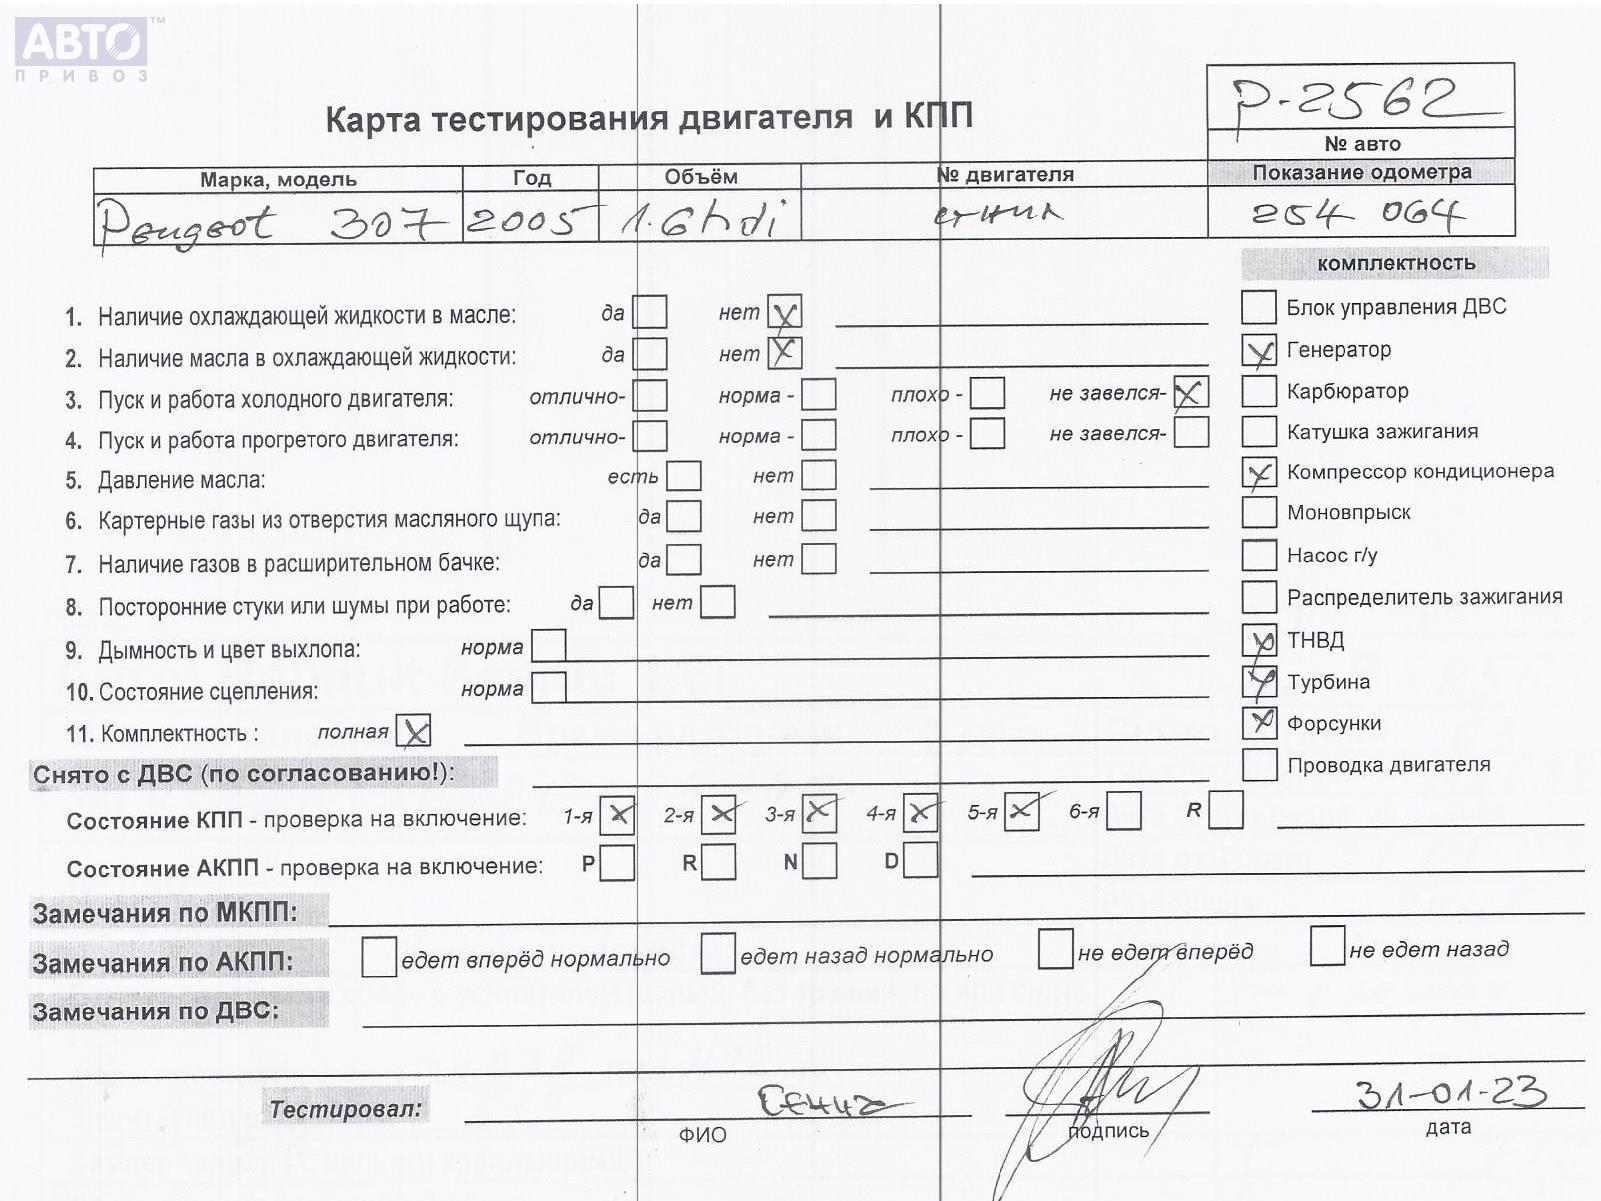 АВТО™
ПРИВОЗ
P-2562
Карта тестирования двигателя и КПП
№ авто
Марка, модель Год Объём № двигателя Показание одометра
Peugeot 307 2005 1.6hdi 254 064
комплектность
1. Наличие охлаждающей жидкости в масле: да нет X Блок управления ДВС
2. Наличие масла в охлаждающей жидкости: да нет X X Генератор
3. Пуск и работа холодного двигателя: отлично- норма - плохо - не завелся- X Карбюратор
4. Пуск и работа прогретого двигателя: отлично- норма - плохо - не завелся- Катушка зажигания
5. Давление масла: есть нет X Компрессор кондиционера
6. Картерные газы из отверстия масляного щупа: да нет Моновпрыск
7. Наличие газов в расширительном бачке: да нет Насос г/у
8. Посторонние стуки или шумы при работе: да нет Распределитель зажигания
9. Дымность и цвет выхлопа: норма X ТНВД
10. Состояние сцепления: норма X Турбина
11. Комплектность : полная X X Форсунки
Снято с ДВС (по согласованию!): Проводка двигателя
Состояние КПП - проверка на включение: 1-я X 2-я X 3-я X 4-я X 5-я X 6-я R
Состояние АКПП - проверка на включение: P R N D
Замечания по МКПП:
Замечания по АКПП: едет вперёд нормально едет назад нормально не едет вперёд не едет назад
Замечания по ДВС:
Тестировал: 31-01-23
ФИО подпись дата